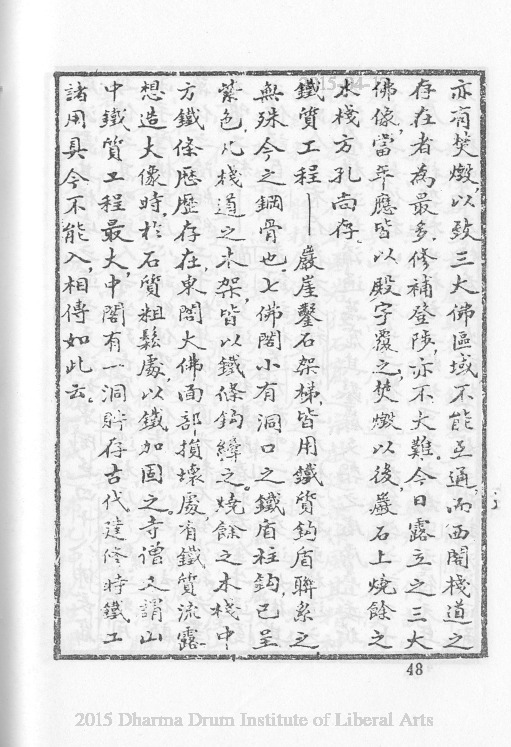 亦有焚燬,以致三大佛區域不能互通,而西閣棧道之
存在者為最多,修補登陟,亦不大難。今日露立之三大
佛像,當年應皆以殿宇覆之,焚燬以後,巖石上燒餘之
木棧方孔尚存。
鐵質工程——巖崖鑿石架梯,皆用鐵質鈎盾聯系之
無殊今之鋼骨也。七佛閣小有洞口之鐵盾柱鈎,已呈
紫色,凡棧道之木架,皆以鐵條鈎縴之。燒餘之木棧中
方鐵條歷歷存在,東閣大佛面部損壞處,有鐵質流露
想造大像時,於石質粗鬆處,以鐵加固之。寺僧又謂山
中鐵質工程最大,中閣有一洞貯存古代建修時鐵工
諸用具今不能入,相傳如此云。
48
2015 Dharma Drum Institute of Liberal Arts